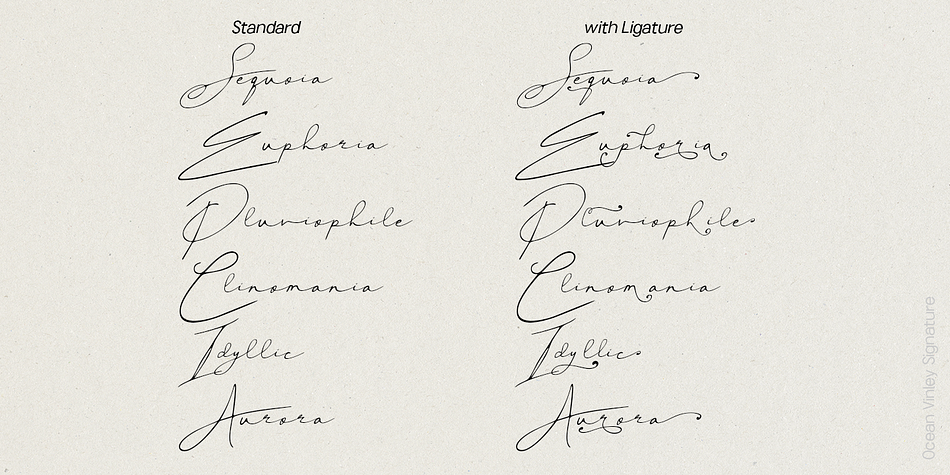 Standard with Ligature
Sequoia Sequoia
Euphoria Euphoria
Pluviophile Pluviophile
Clinomania Clinomania
Idyllic Idyllic
Aurora Aurora
Ocean Vinley Signature